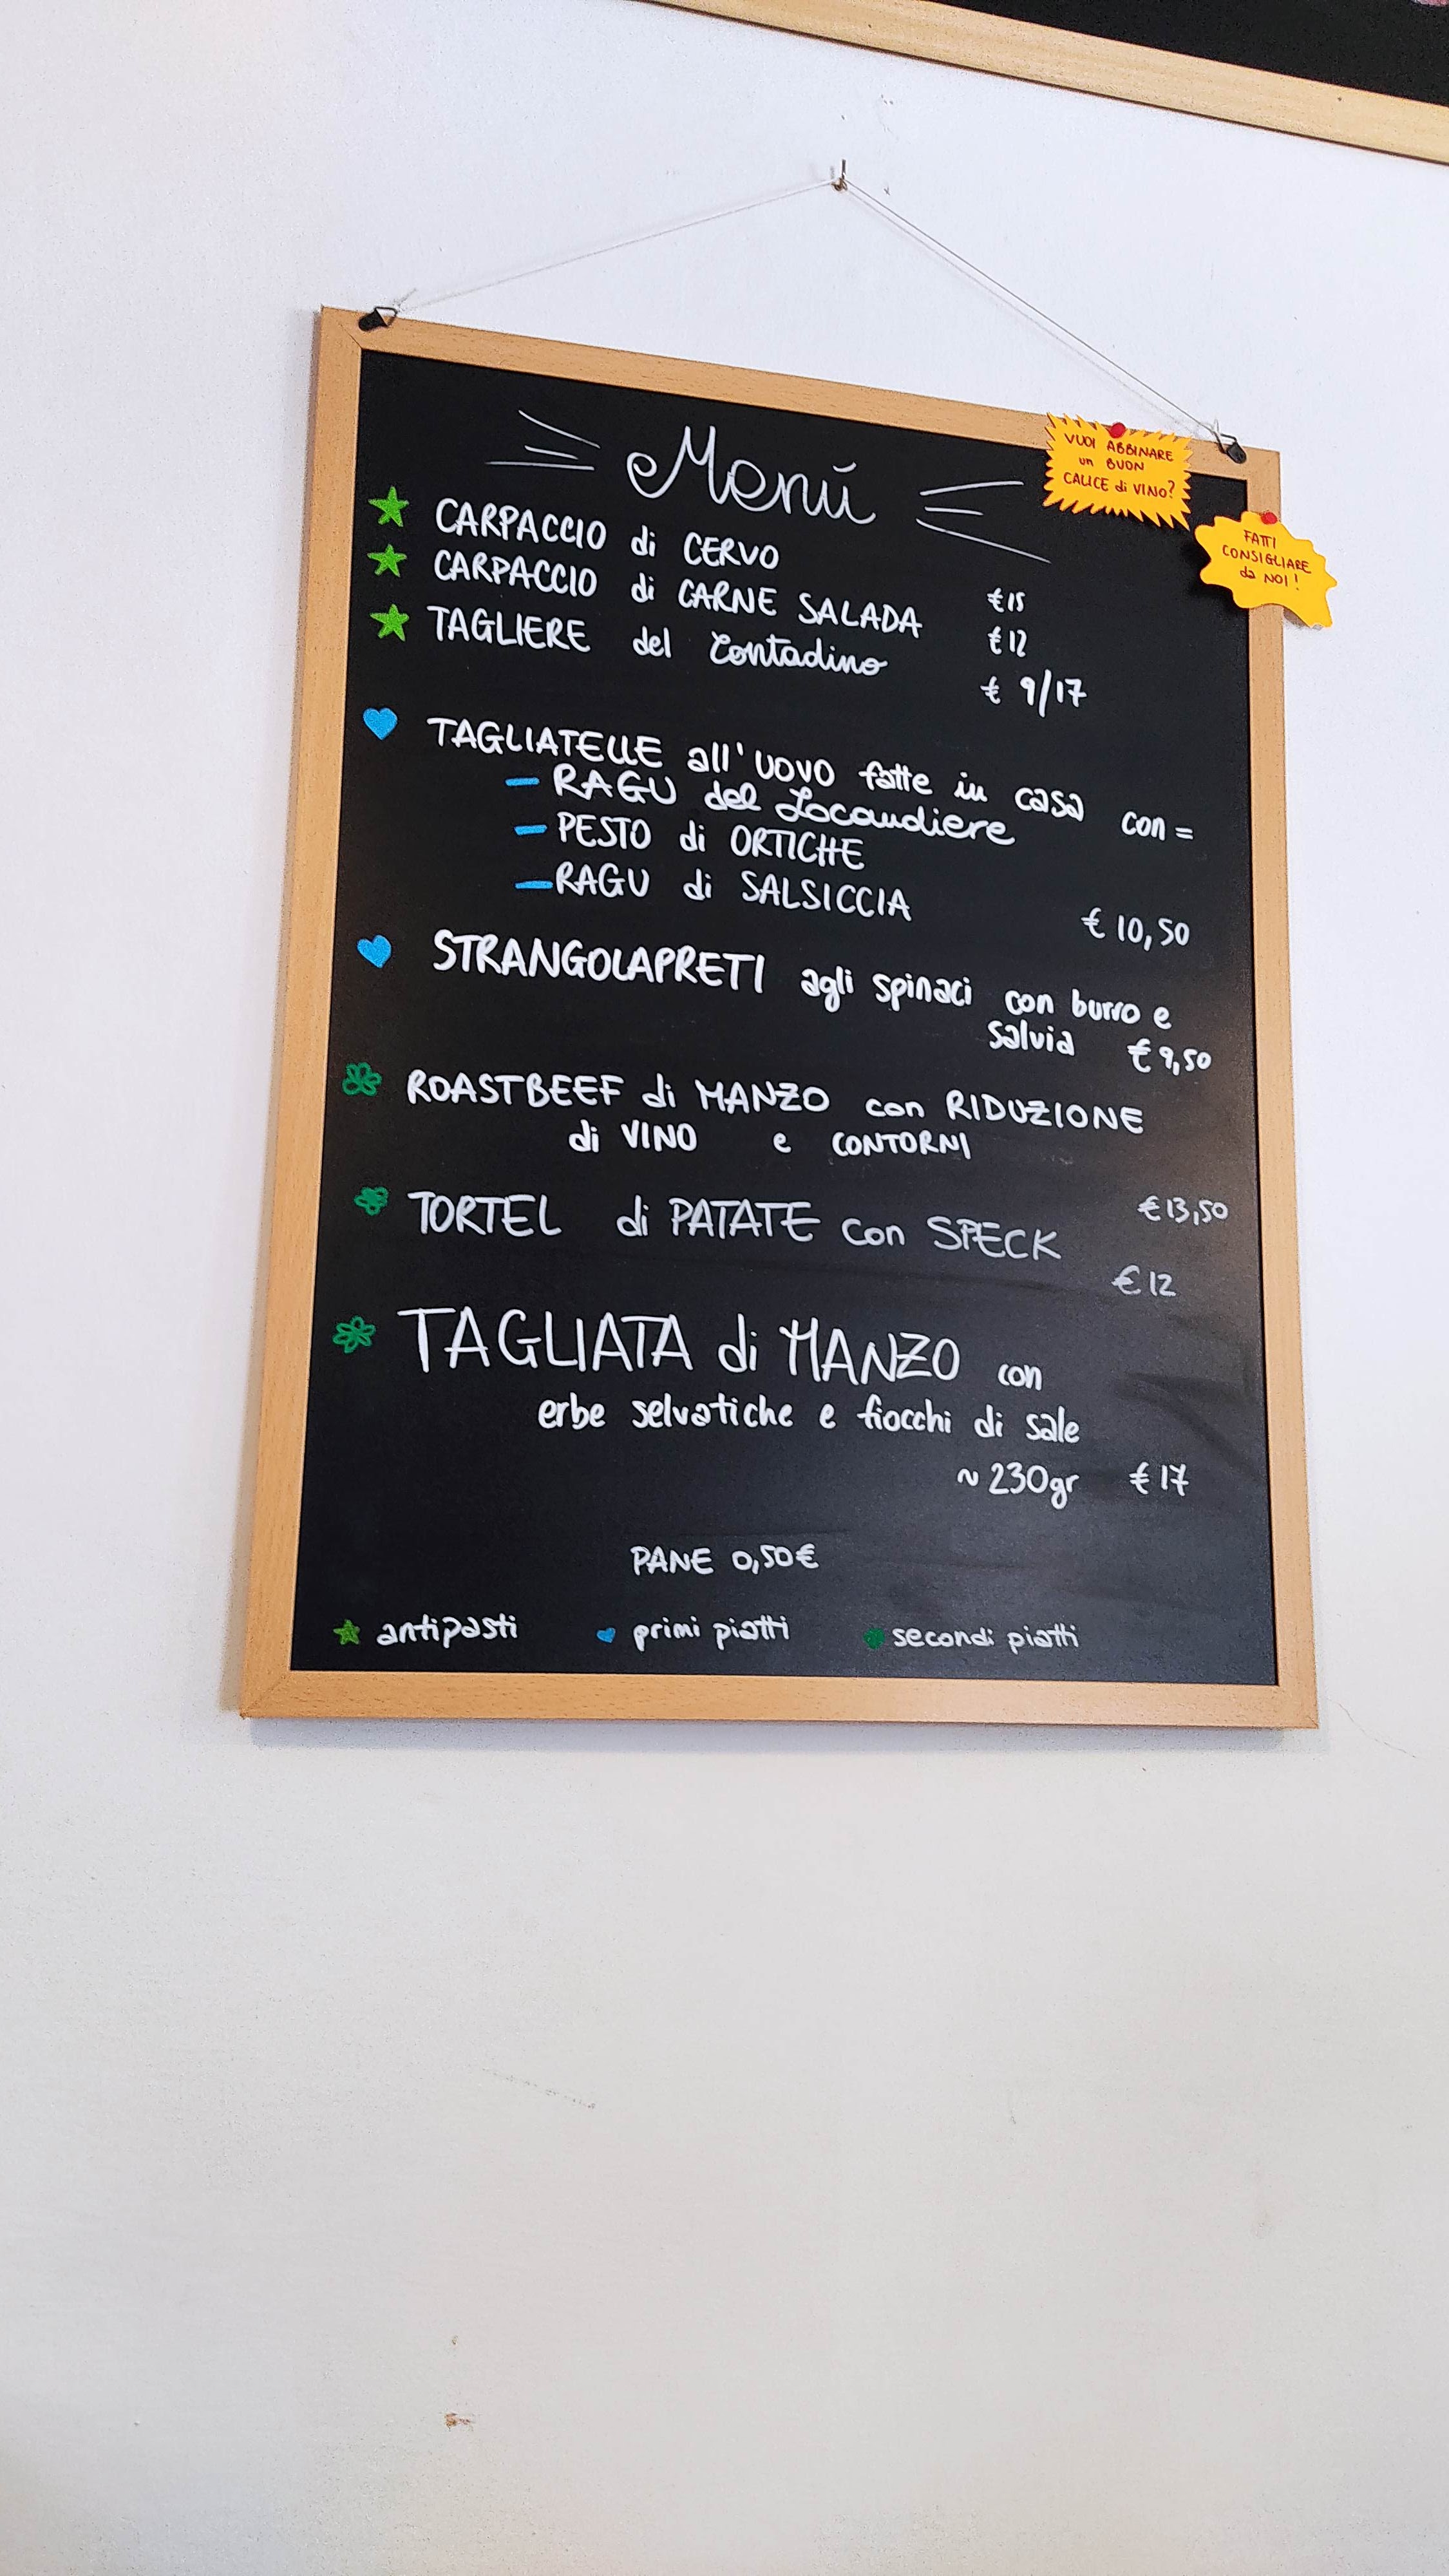 Menú
VUOI ABBINARE
un BUON
CALICE di VINO?
FATTI
CONSIGLIARE
da NOI!
CARPACCIO di CERVO €15
CARPACCIO di CARNE SALADA €12
TAGLIERE del Contadino € 9/17
TAGLIATELLE all'UOVO fatte in casa con =
– RAGU del Locandiere
– PESTO di ORTICHE
– RAGU di SALSICCIA € 10,50
STRANGOLAPRETI agli spinaci con burro e
salvia € 9,50
ROASTBEEF di MANZO con RIDUZIONE
di VINO e CONTORNI
€ 13,50
TORTEL di PATATE con SPECK
€ 12
TAGLIATA di MANZO con
erbe selvatiche e fiocchi di sale
~ 230gr € 17
PANE 0,50€
antipasti primi piatti secondi piatti